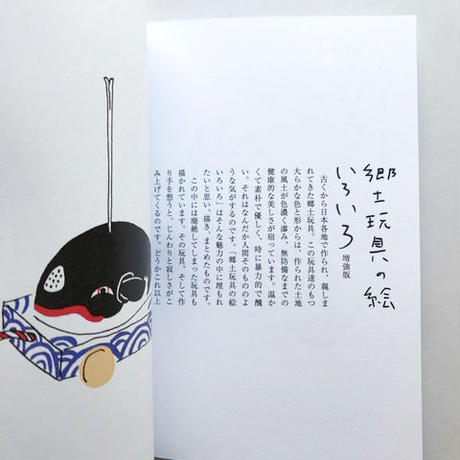 郷土玩具の絵
いろいろ
増強版
古くから日本各地で作られ、親しま
れてきた郷土玩具。この玩具達のもつ
大らかな色と形からは、作られた土地
の風土が色濃く滲み、無防備なまでの
健康的な美しさが宿っています。温か
くて素朴で優しく、時に暴力的で醜
い。それはなんだか人間そのもののよ
うな気がするのです。「郷土玩具の絵
いろいろ」はそんな魅力の中に埋もれ
たいと思い、描き、まとめたものです。
この中には廃絶してしまった玩具も
描かれています。その玩具、そして作
り手を想うと、じんわりと寂しさがこ
み上げてくるのです。どうかこれ以上